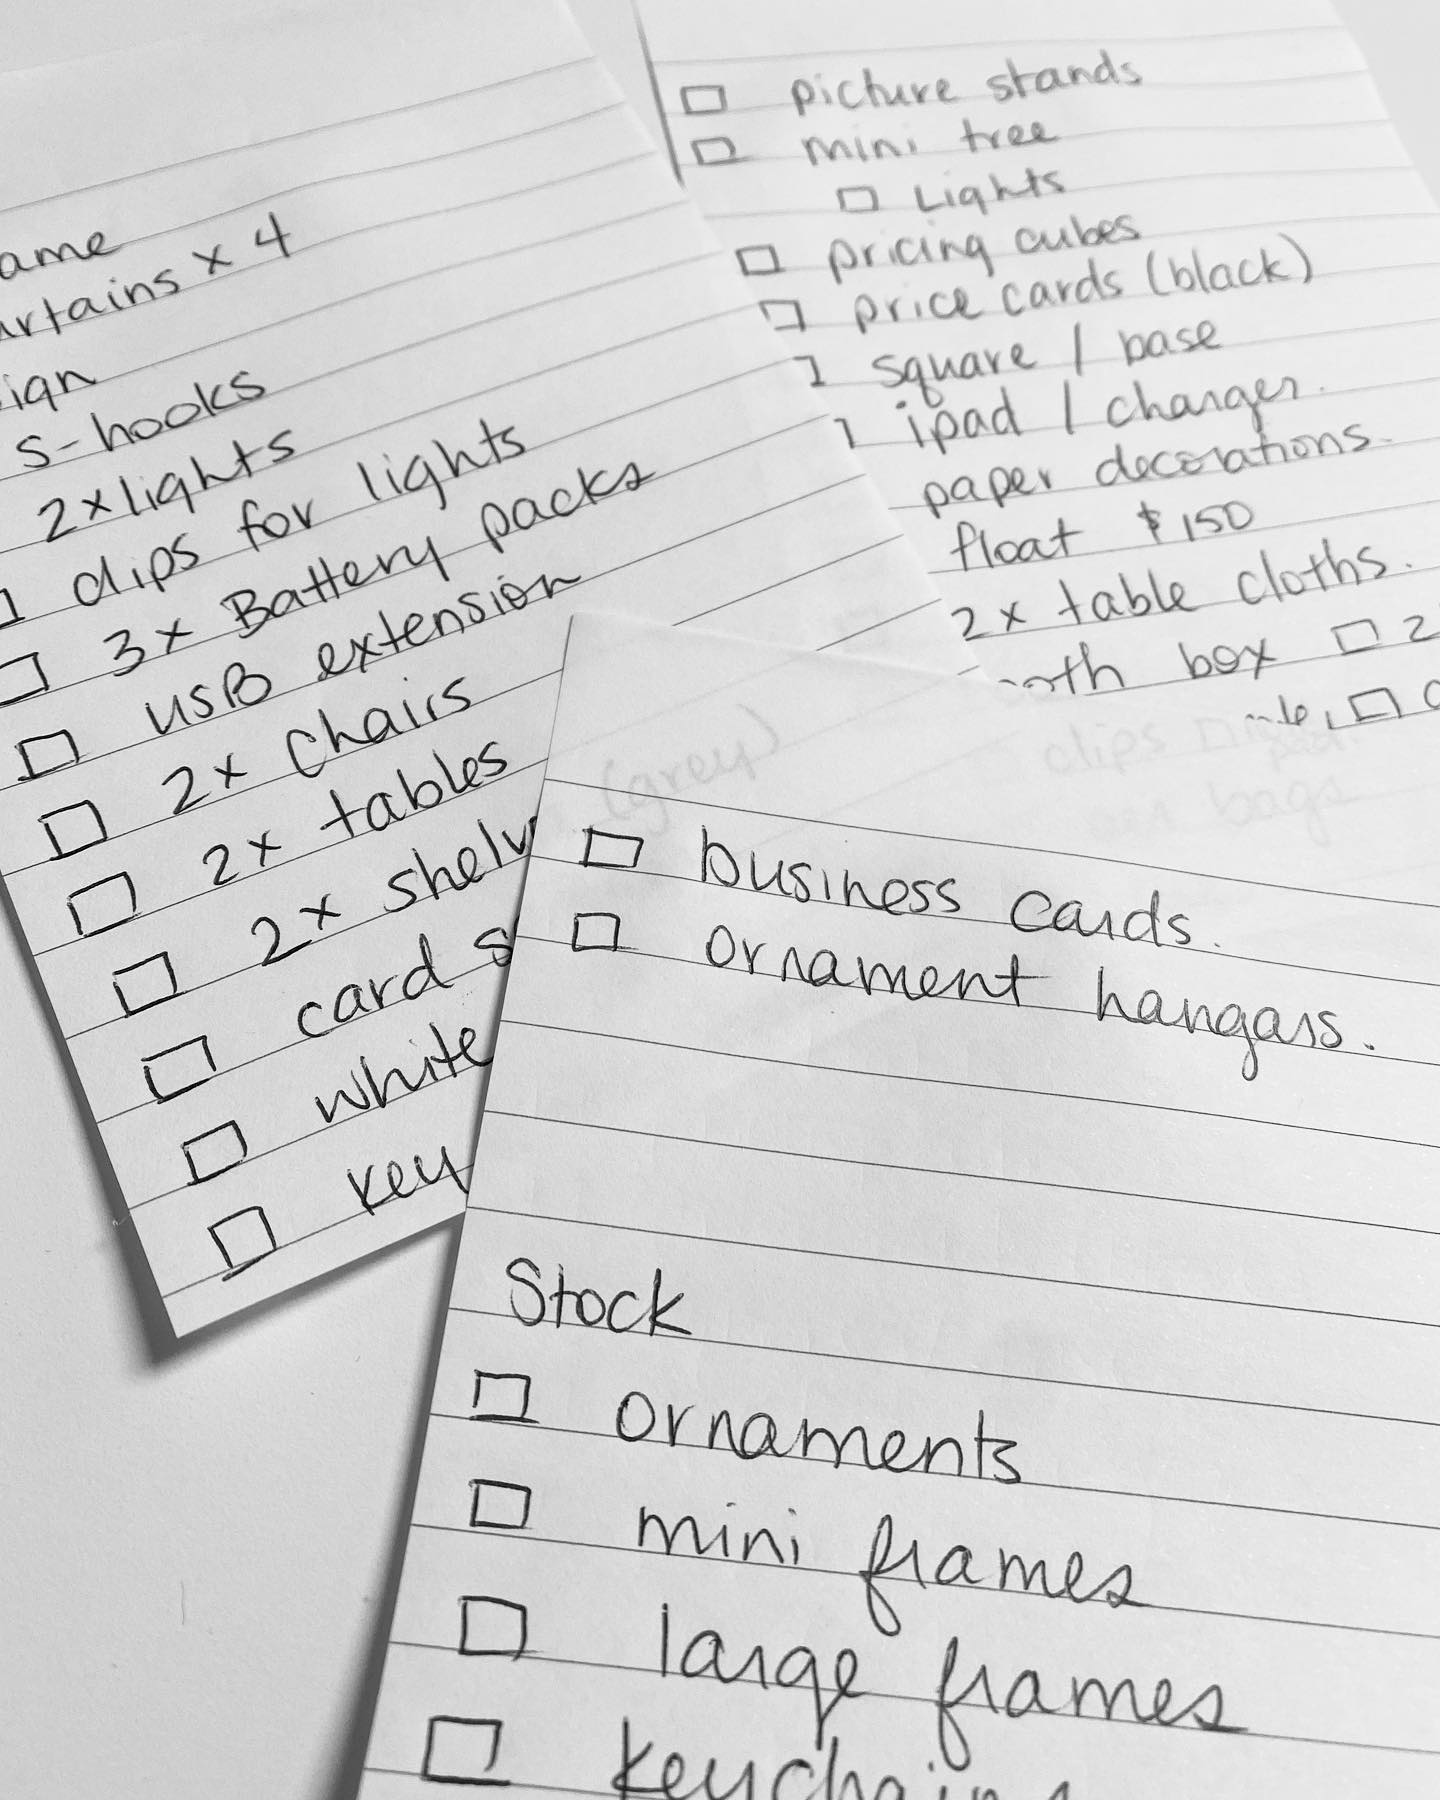 x 4
s-hooks
2x lights
clips for lights
3x Battery packs
USB extension
2x Chairs
2x tables
2x
card
white
picture stands
mini tree
Lights
pricing cubes
price cards (black)
square / base
ipad / charger.
paper decorations.
float $150
2x table cloths.
box 2
(grey)
clips
bags
business cards.
ornament hangars.
Stock
ornaments
mini frames
large frames
keychains